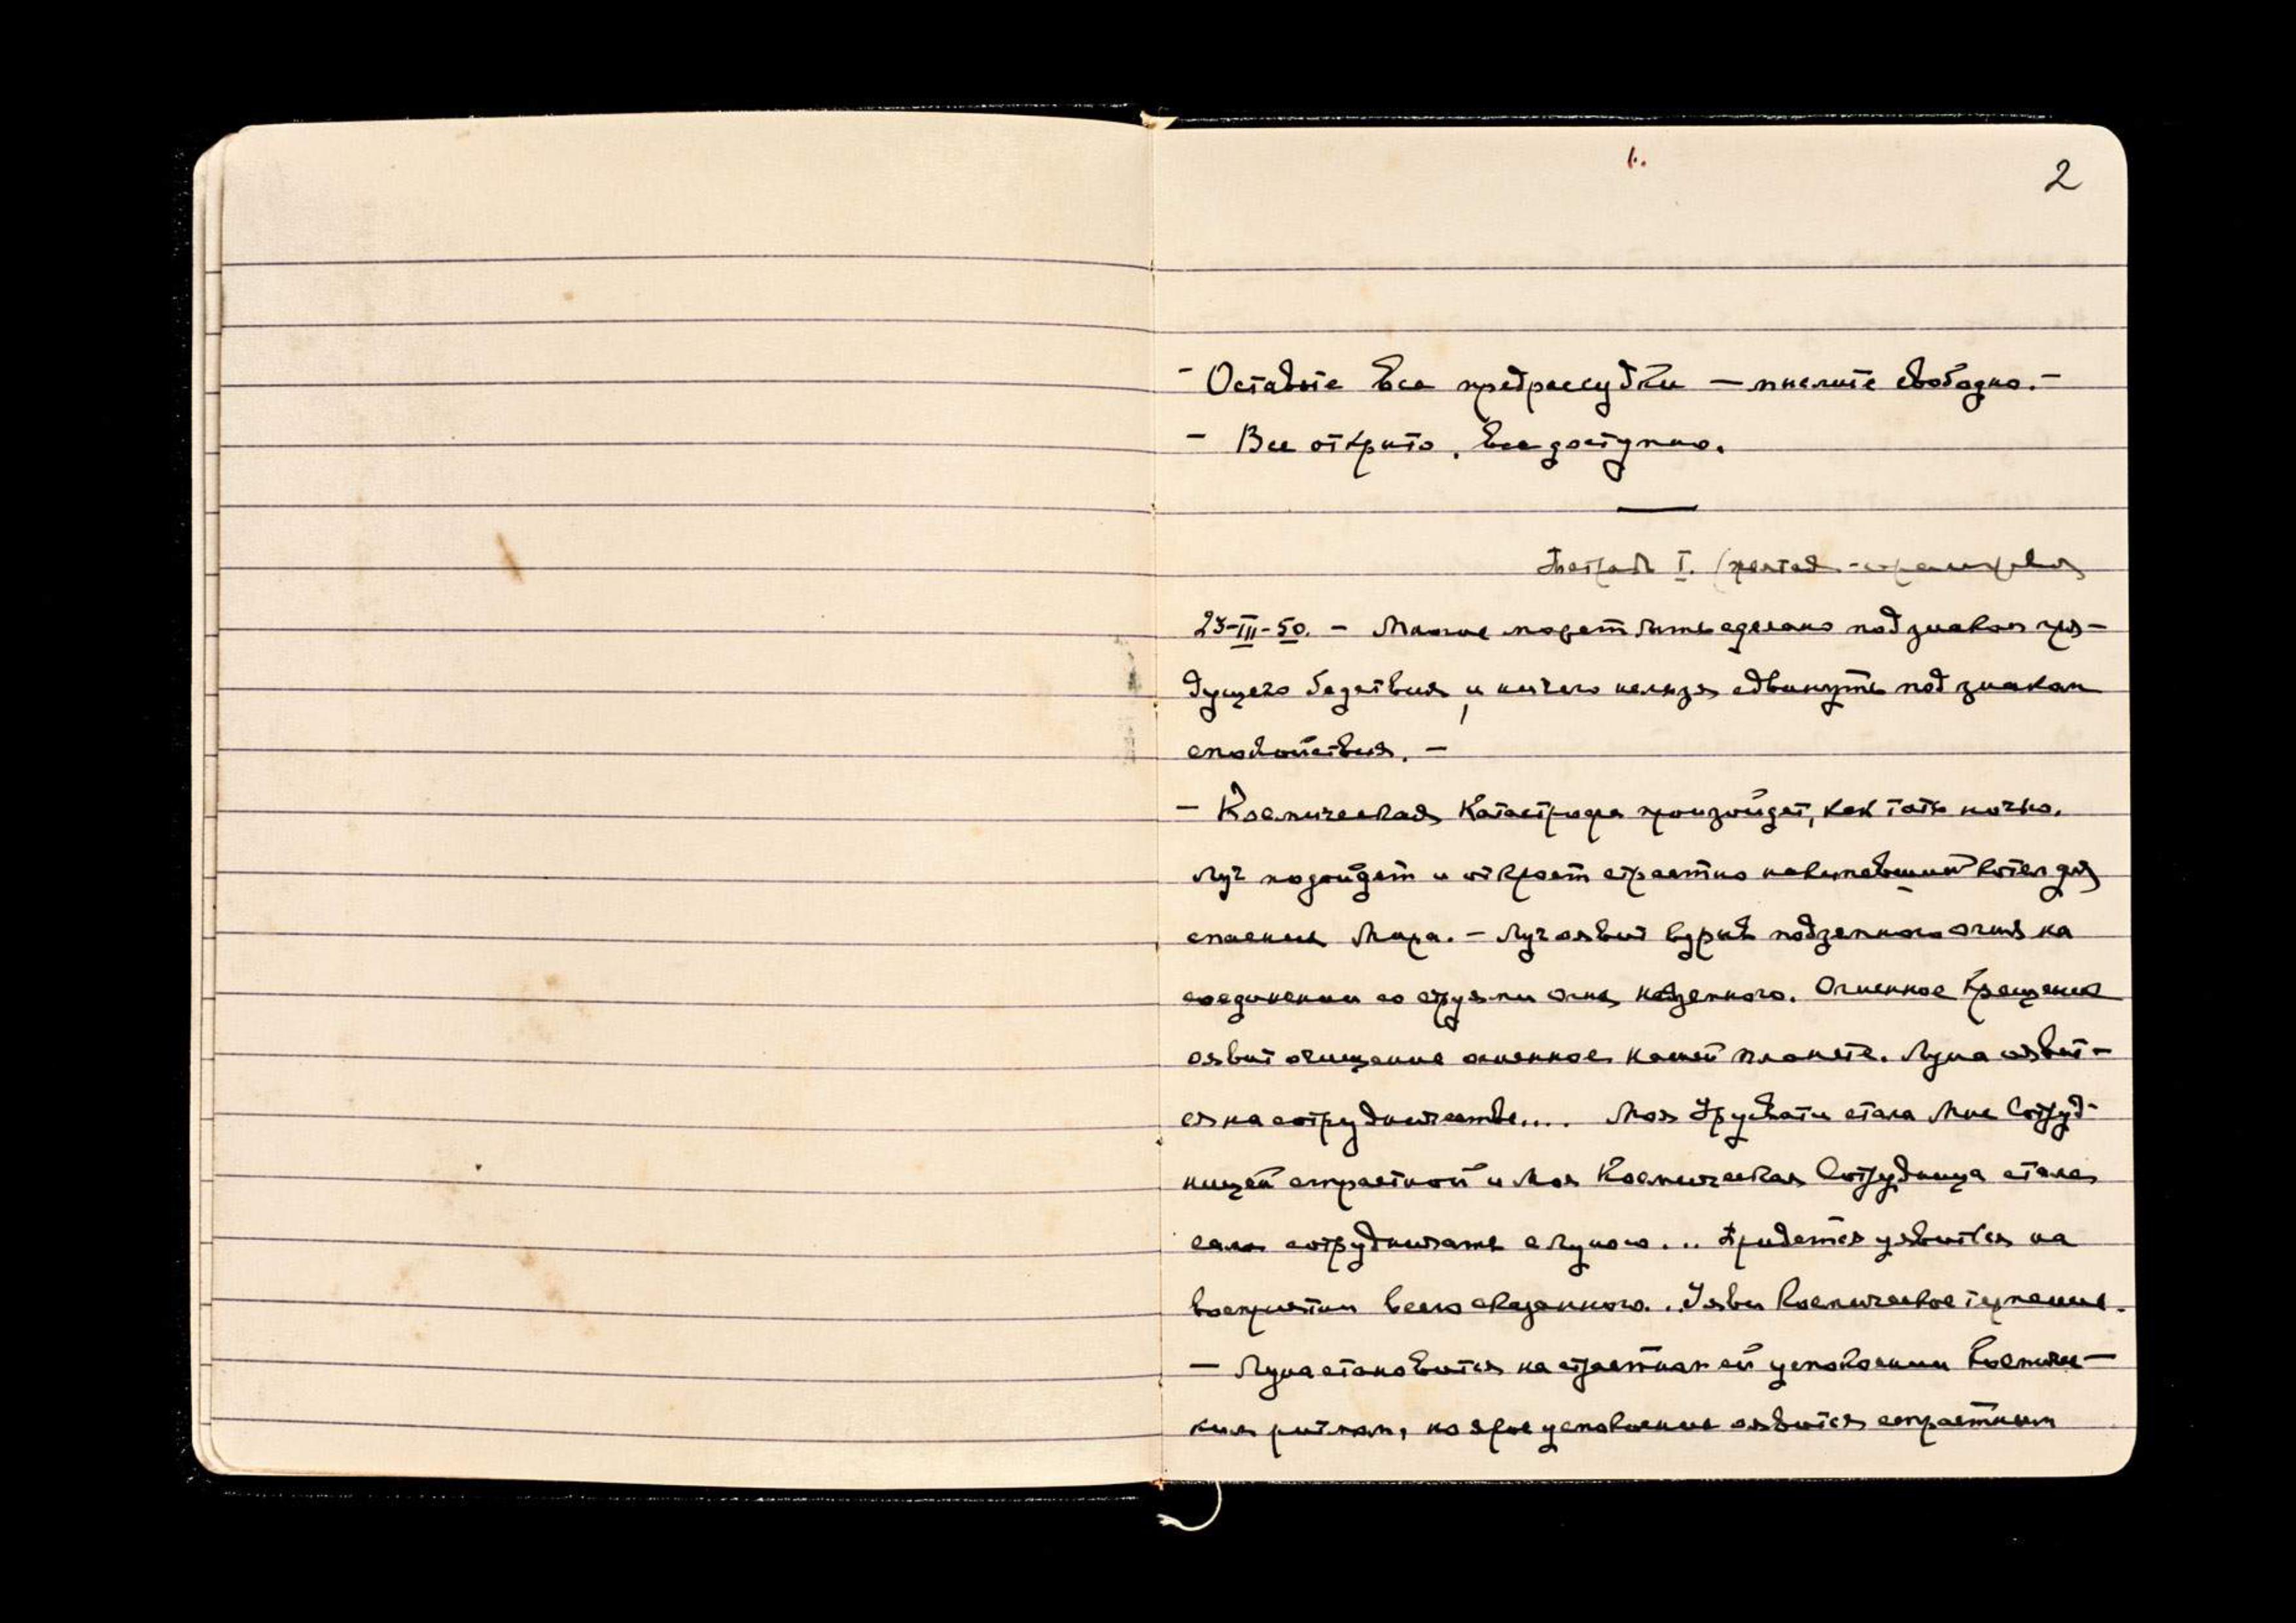 1.
2
- Оставьте все предрассудки — мыслите свободно. -
- Все открыто, все доступно.
Тетрадь I.
23-III-50. - Многое может быть сделано под знаком гря-
дущего бедствия, и ничего нельзя сдвинуть под знаком
спокойствия. -
- Космическая Катастрофа произойдет, как тать ночью.
Луч подойдет и откроет страстно накипевший котел для
спасения Мира. - Луч явит взрыв подземного огня на
соединении со струями огня надземного. Огненное Крещение
оявит очищение огненное нашей планете. Луна оявит-
ся на сотрудничестве.... Моя Урусвати стала Мне Сотруд-
ницей страстной и Моя Космическая Сотрудница стала
сама сотрудничать с Луною... Придется уявиться на
восприятии всего сказанного. . Уяви Космическое терпение.
- Луна становится на страстном ей успокоении Космичес-
ким ритмом, но ярое успокоение оявится страстным